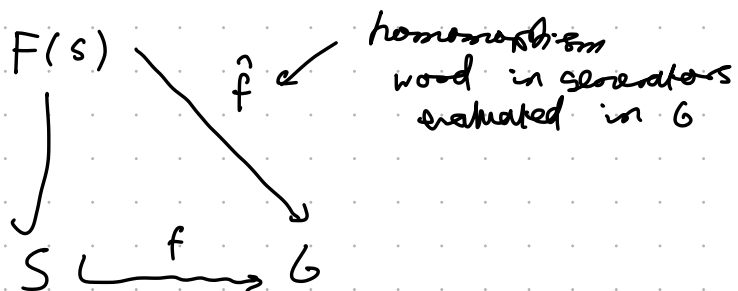 F(S)
f̂
homomorphism
word in generators
evaluated in G
f
S
G